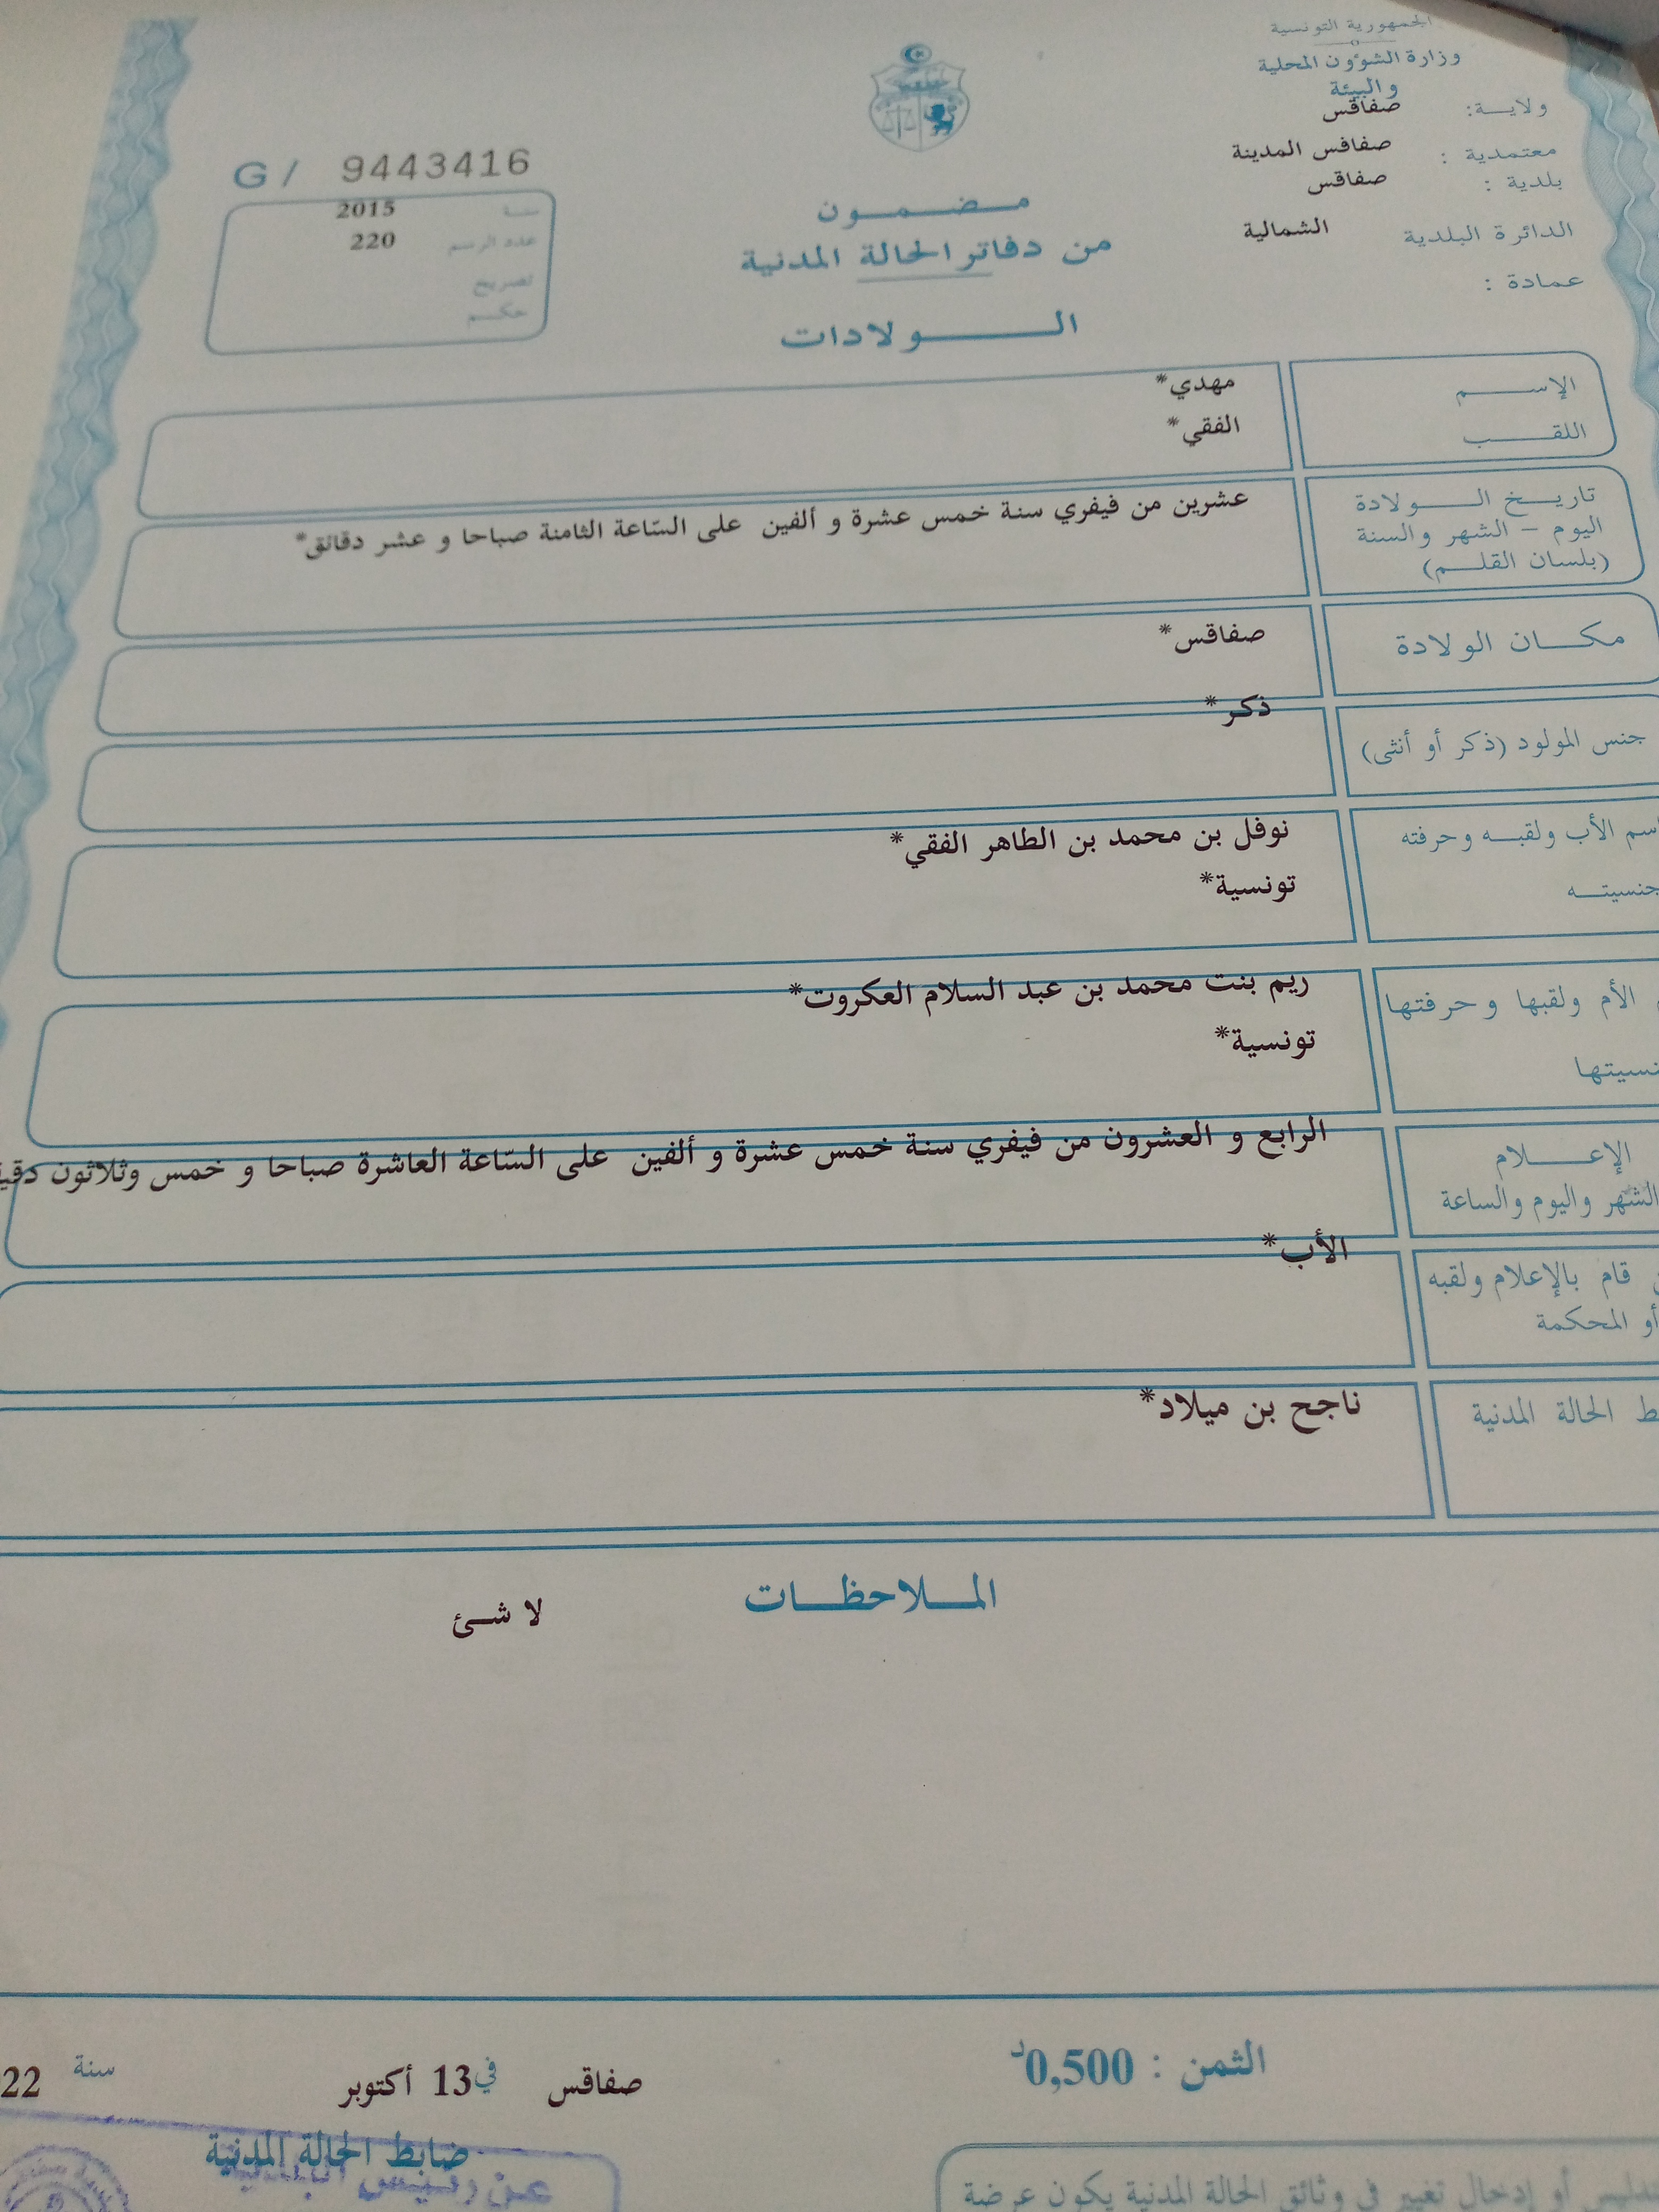 الجمهورية التونسية
وزارة الشؤون المحلية
والبيئة
ولاية: صفاقس
معتمدية : صفاقس المدينة
بلدية : صفاقس
الدائرة البلدية الشمالية
عمادة :
G/ 9443416
سنة 2015
عدد الرسم 220
تصريح
حكم
مضمون
من دفاتر الحالة المدنية
الولادات
الإسم مهدي*
اللقب الفقي*
تاريخ الولادة
اليوم - الشهر والسنة
(بلسان القلم)
عشرين من فيفري سنة خمس عشرة و ألفين على السّاعة الثامنة صباحا و عشر دقائق*
مكان الولادة صفاقس*
جنس المولود (ذكر أو أنثى) ذكر*
اسم الأب ولقبه وحرفته نوفل بن محمد بن الطاهر الفقي*
جنسيته تونسية*
الأم ولقبها وحرفتها ريم بنت محمد بن عبد السلام العكروت*
تونسية*
الإعلام
الشهر واليوم والساعة
الرابع و العشرون من فيفري سنة خمس عشرة و ألفين على السّاعة العاشرة صباحا و خمس وثلاثون
قام بالإعلام ولقبه
أو المحكمة
الأب*
الحالة المدنية ناجح بن ميلاد*
الملاحظات
لا شئ
الثمن : 0,500د
صفاقس في 13 أكتوبر سنة 22
ضابط الحالة المدنية
عن رئيس البلدية
أو إدخال تغيير في وثائق الحالة المدنية يكون عرضة